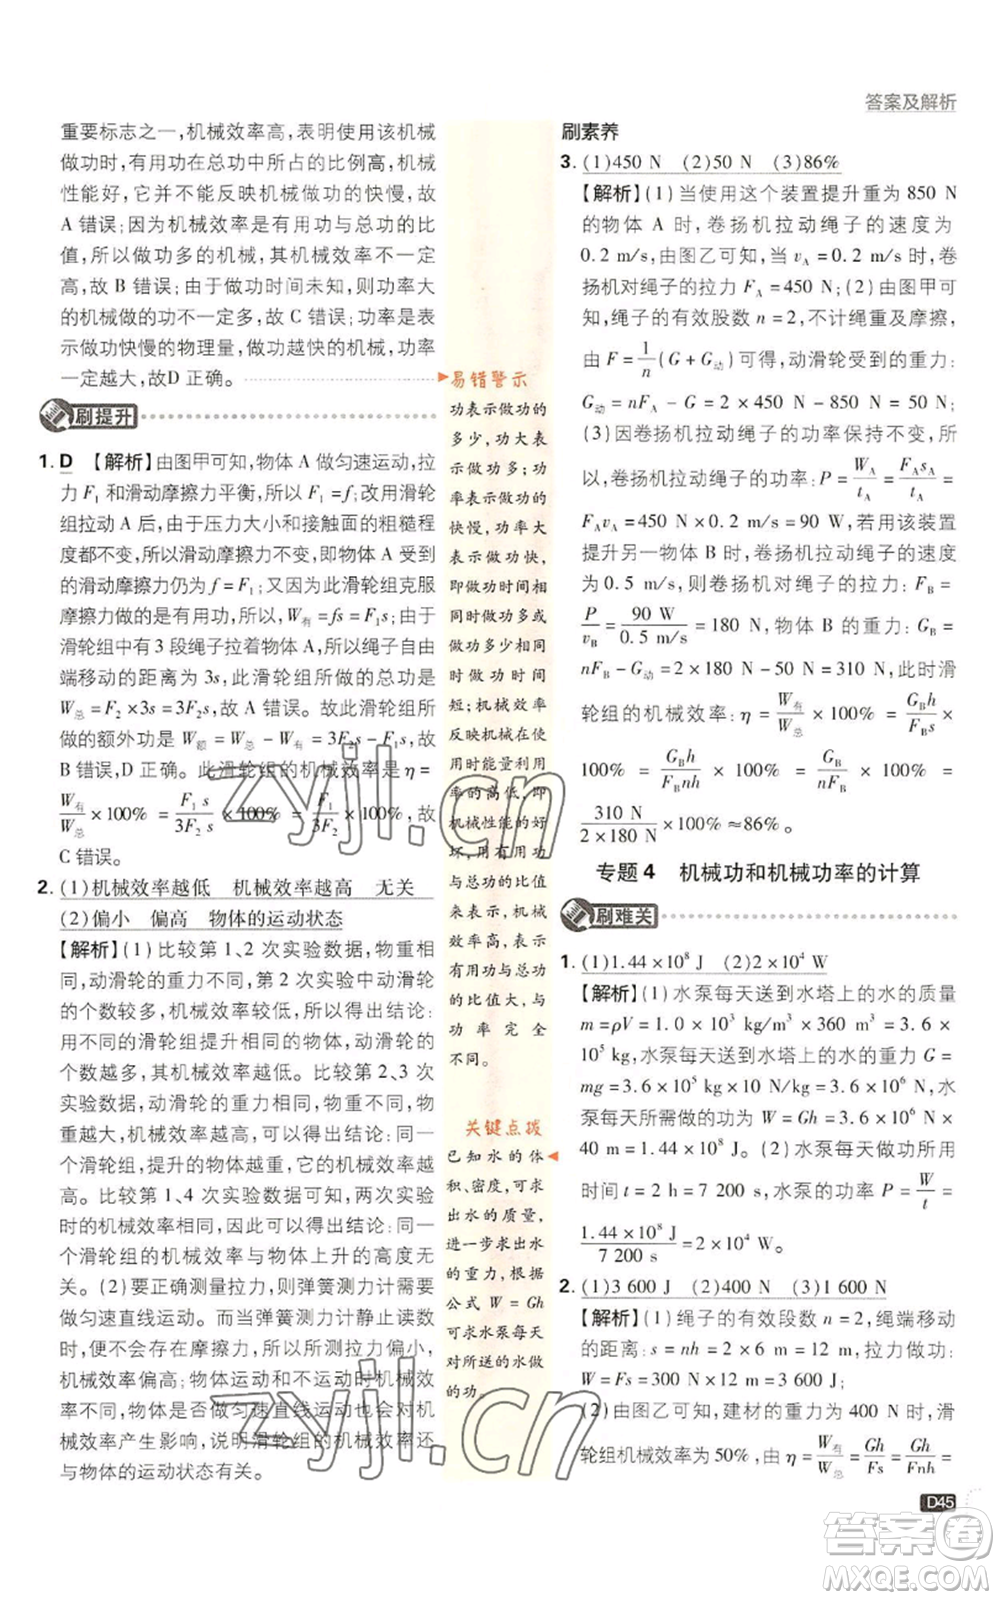 答案及解析
重要标志之一,机械效率高,表明使用该机械
做功时,有用功在总功中所占的比例高,机械
性能好,它并不能反映机械做功的快慢,故
A 错误;因为机械效率是有用功与总功的比
值,所以做功多的机械,其机械效率不一定
高,故 B 错误;由于做功时间未知,则功率大
的机械做的功不一定多,故 C 错误;功率是表
示做功快慢的物理量,做功越快的机械,功率
一定越大,故D 正确。
刷提升
1. D 【解析】由图甲可知,物体 A 做匀速运动,拉
力 F₁ 和滑动摩擦力平衡,所以 F₁=f;改用滑轮
组拉动 A 后,由于压力大小和接触面的粗糙程
度都不变,所以滑动摩擦力不变,即物体 A 受到
的滑动摩擦力仍为 f=F₁;又因为此滑轮组克服
摩擦力做的是有用功,所以,W有=fs=F₁s;由于
滑轮组中有 3 段绳子拉着物体 A,所以绳子自由
端移动的距离为 3s,此滑轮组所做的总功是
W总=F₂×3s=3F₂s,故 A 错误。故此滑轮组所
做的额外功 W额=W总-W有=3F₂s-F₁s,故
B 错误,D 正确。此滑轮组的机械效率是 η=
W有/W总×100% = F₁s/3F₂s×100% = F₁/3F₂×100%,故
C 错误。
2. (1)机械效率越低 机械效率越高 无关
(2)偏小 偏高 物体的运动状态
【解析】(1)比较第 1、2 次实验数据,物重相
同,动滑轮的重力不同,第 2 次实验中动滑轮
的个数较多,机械效率较低,可以得出结论:
用不同的滑轮组提升相同的物体,动滑轮的个
数越多,其机械效率越低。比较第 2、3 次实
验数据,动滑轮的重力相同,第 3 次实验中物
重越大,机械效率越高,可以得出结论:同一
个滑轮组,提升的物体越重,它的机械效率越
高。比较第 1、4 次实验数据可知,两次实验
时的机械效率相同,因此可以得出结论:同一
个滑轮组的机械效率与物体上升的高度无
关。(2)要正确测量拉力,弹簧测力计需要
做匀速直线运动。而当弹簧测力计静止读数
时,由于不存在摩擦力,所测拉力偏小,机械
效率偏高;物体运动和不运动时机械效率不
一样,因此是否做匀速直线运动,对滑轮组机
械效率产生影响,说明滑轮组的机械效率还
与物体的运动状态有关。
易错警示
功表示做功的
多少,功大表
示做功多;功
率表示做功的
快慢,功率大
表示做功快,
即做功时间相
同时做功多或
做功多少相同
时做功时间
短;机械效率
反映机械在使
用时能量利用
率的高低,即
机械性能的好
坏,用有用功
与总功的比值
来表示,机械
效率高,表示
有用功与总功
的比值大,与
功率完全
不同。
关键点拨
已知水的体
积、密度,可求
出水的质量,
进一步求出水
的重力,根据
公式 W=Gh
可求水泵每天
对所送的水做
的功。
刷素养
3. (1)450 N (2)50 N (3)86%
【解析】(1)当使用这个装置提升重为 850 N
的物体 A 时,卷扬机拉动绳子的速度为
0.2 m/s,由图乙可知,当 vA=0.2 m/s 时,卷
扬机对绳子的拉力 FA=450 N;(2)由图甲可
知,绳子的有效股数 n=2,不计绳重及摩擦,
由 F=1/n(G+G动)可得,动滑轮受到的重力:
G动=nFA-G=2×450 N-850 N=50 N;
(3)因卷扬机拉动绳子的功率保持不变,所
以,卷扬机拉动绳子的功率:P=WA/tA=FAsA/tA=
FAvA=450 N×0.2 m/s=90 W,若用该装置
提升另一物体 B 时,卷扬机拉动绳子的速度
为 0.5 m/s,则卷扬机对绳子的拉力:FB=
P/vB=90 W/0.5 m/s=180 N,物体 B 的重力:GB=
nFB-G动=2×180 N-50 N=310 N,此时滑
轮组的机械效率:η=W有/W总×100%=GBh/FBs×
100% = GBh/FBnh × 100% = GB/nFB × 100% =
310 N/2×180 N×100%≈86%。
专题 4 机械功和机械功率的计算
刷难关
1. (1)1.44×10⁸ J (2)2×10⁴ W
【解析】(1)水泵每天送到水塔上的水的质量
m=ρV=1.0×10³ kg/m³×360 m³=3.6×
10⁵ kg,水泵每天送到水塔上的水的重力 G=
mg=3.6×10⁵ kg×10 N/kg=3.6×10⁶ N,水
泵每天所需做的功 W=Gh=3.6×10⁶ N×
40 m=1.44×10⁸ J。(2)水泵每天做功所用
时间 t=2 h=7 200 s,水泵的功率 P=W/t=
1.44×10⁸ J/7 200 s=2×10⁴ W。
2. (1)3 600 J (2)400 N (3)1 600 N
【解析】(1)绳子的有效段数 n=2,绳端移动
的距离:s=nh=2×6 m=12 m,拉力做功:
W=Fs=300 N×12 m=3 600 J;
(2)由图乙可知,建材的重力为 400 N时,滑
轮组机械效率为 50%,由 η=W有/W总=Gh/Fs=Gh/Fnh=
D45
zyjl.cn
zyjl.cn
答案圈
MXQE.COM